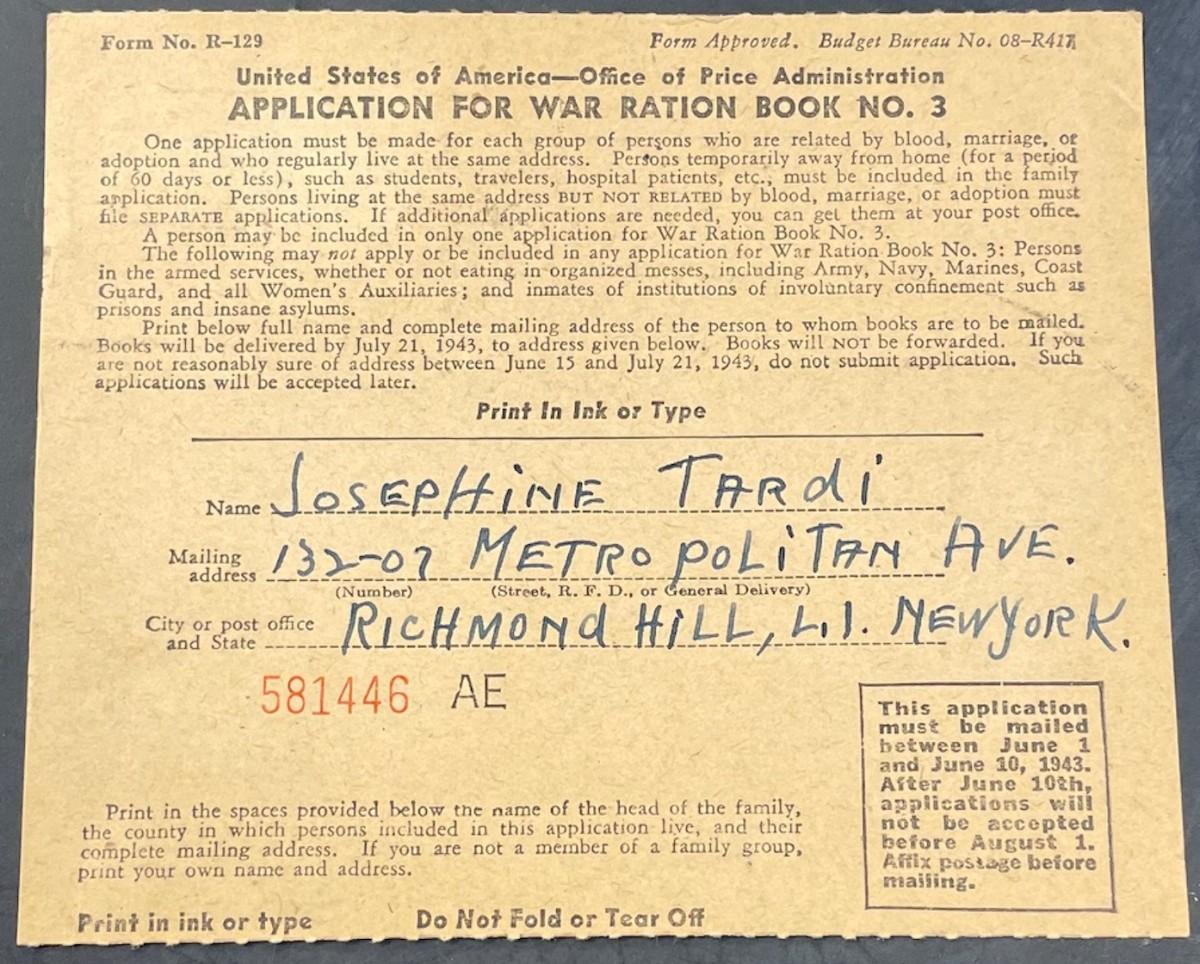 Form No. R–129
Form Approved. Budget Bureau No. 08–R417
United States of America—Office of Price Administration
APPLICATION FOR WAR RATION BOOK NO. 3
One application must be made for each group of persons who are related by blood, marriage, or
adoption and who regularly live at the same address. Persons temporarily away from home (for a period
of 60 days or less), such as students, travelers, hospital patients, etc., must be included in the family
application. Persons living at the same address BUT NOT RELATED by blood, marriage, or adoption must
file SEPARATE applications. If additional applications are needed, you can get them at your post office.
A person may be included in only one application for War Ration Book No. 3.
The following may not apply or be included in any application for War Ration Book No. 3: Persons
in the armed services, whether or not eating in organized messes, including Army, Navy, Marines, Coast
Guard, and all Women's Auxiliaries; and inmates of institutions of involuntary confinement such as
prisons and insane asylums.
Print below full name and complete mailing address of the person to whom books are to be mailed.
Books will be delivered by July 21, 1943, to address given below. Books will NOT be forwarded. If you
are not reasonably sure of address between June 15 and July 21, 1943, do not submit application. Such
applications will be accepted later.
Print In Ink or Type
Name JOSEPHiNE TARdi
Mailing address 132-07 METROPOLiTAN AVE.
(Number) (Street, R. F. D., or General Delivery)
City or post office and State RICHMONd HiLL, L.I. NEWYORK.
581446 AE
This application
must be mailed
between June 1
and June 10, 1943.
After June 10th,
applications will
not be accepted
before August 1.
Affix postage before
mailing.
Print in the spaces provided below the name of the head of the family,
the county in which persons included in this application live, and their
complete mailing address. If you are not a member of a family group,
print your own name and address.
Print in ink or type Do Not Fold or Tear Off